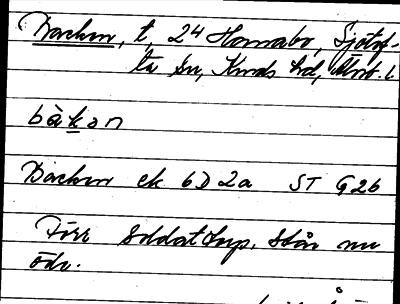 Backen, t, 24 Hornabo, Sjötof-
ta sn, Kinds hd,
bàkan
Backen ek 6D 2a ST G26
Förr soldattorp. Står nu
öde.